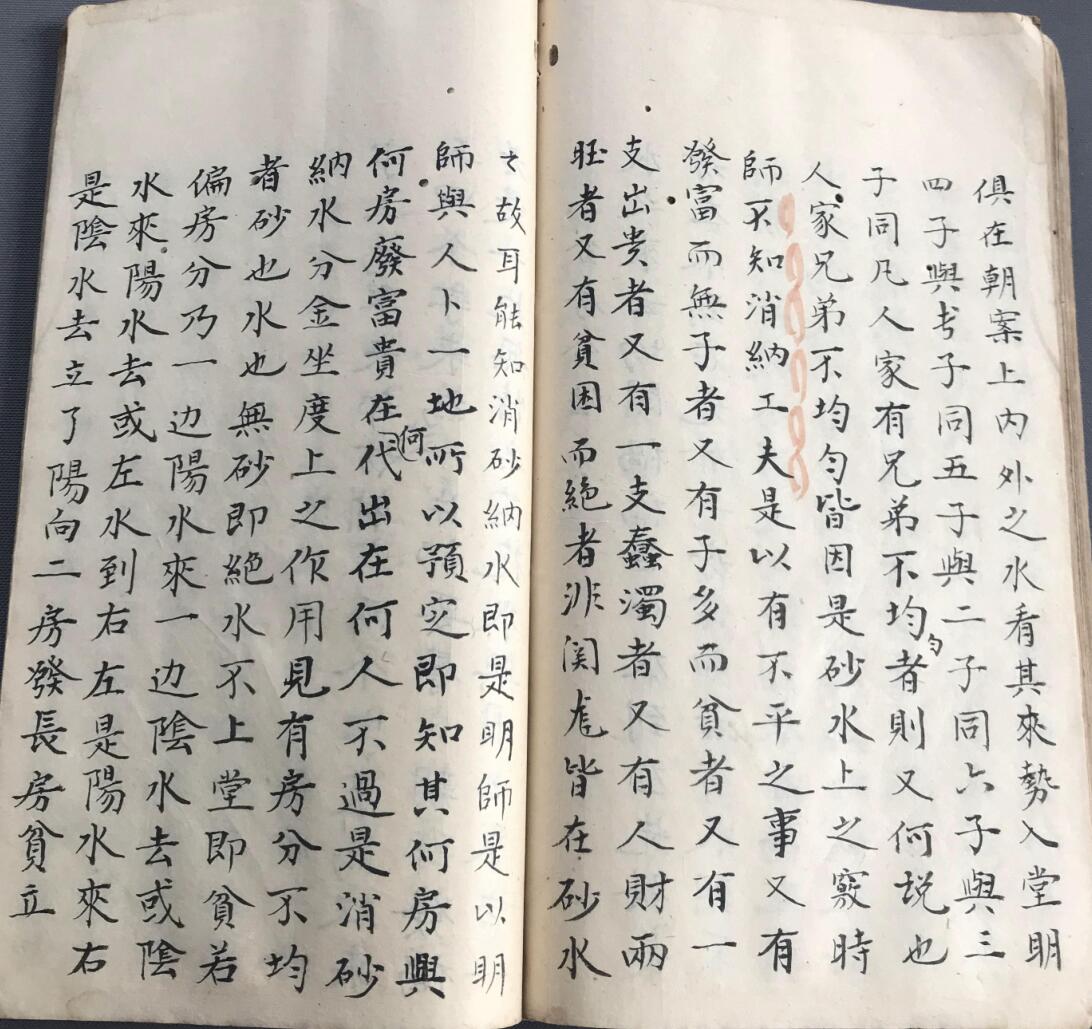 俱在朝案上內外之水看其來勢入堂明
四子與长子同五子與二子同六子與三
子同凡人家有兄弟不均勻者則又何説也
人家兄弟不均勻皆因是砂水上之竅時
師不知消納工夫是以有不平之事又有
發富而無子者又有子多而貧者又有一
支出贵者又有一支蠢濁者又有人財兩
旺者又有貧困而絕者非関尨皆在砂水
之故耳能知消砂納水即是明師是以明
師與人卜一地所以預定即知其何房興
何房廢富貴在何代出在何人不過是消砂
納水分金坐度上之作用見有房分不均
者砂也水也無砂即絕水不上堂即貧若
偏房分乃一边陽水來一边陰水去或陰
水來陽水去或左水到右左是陽水來右
是陰水去立了陽向二房發長房貧立